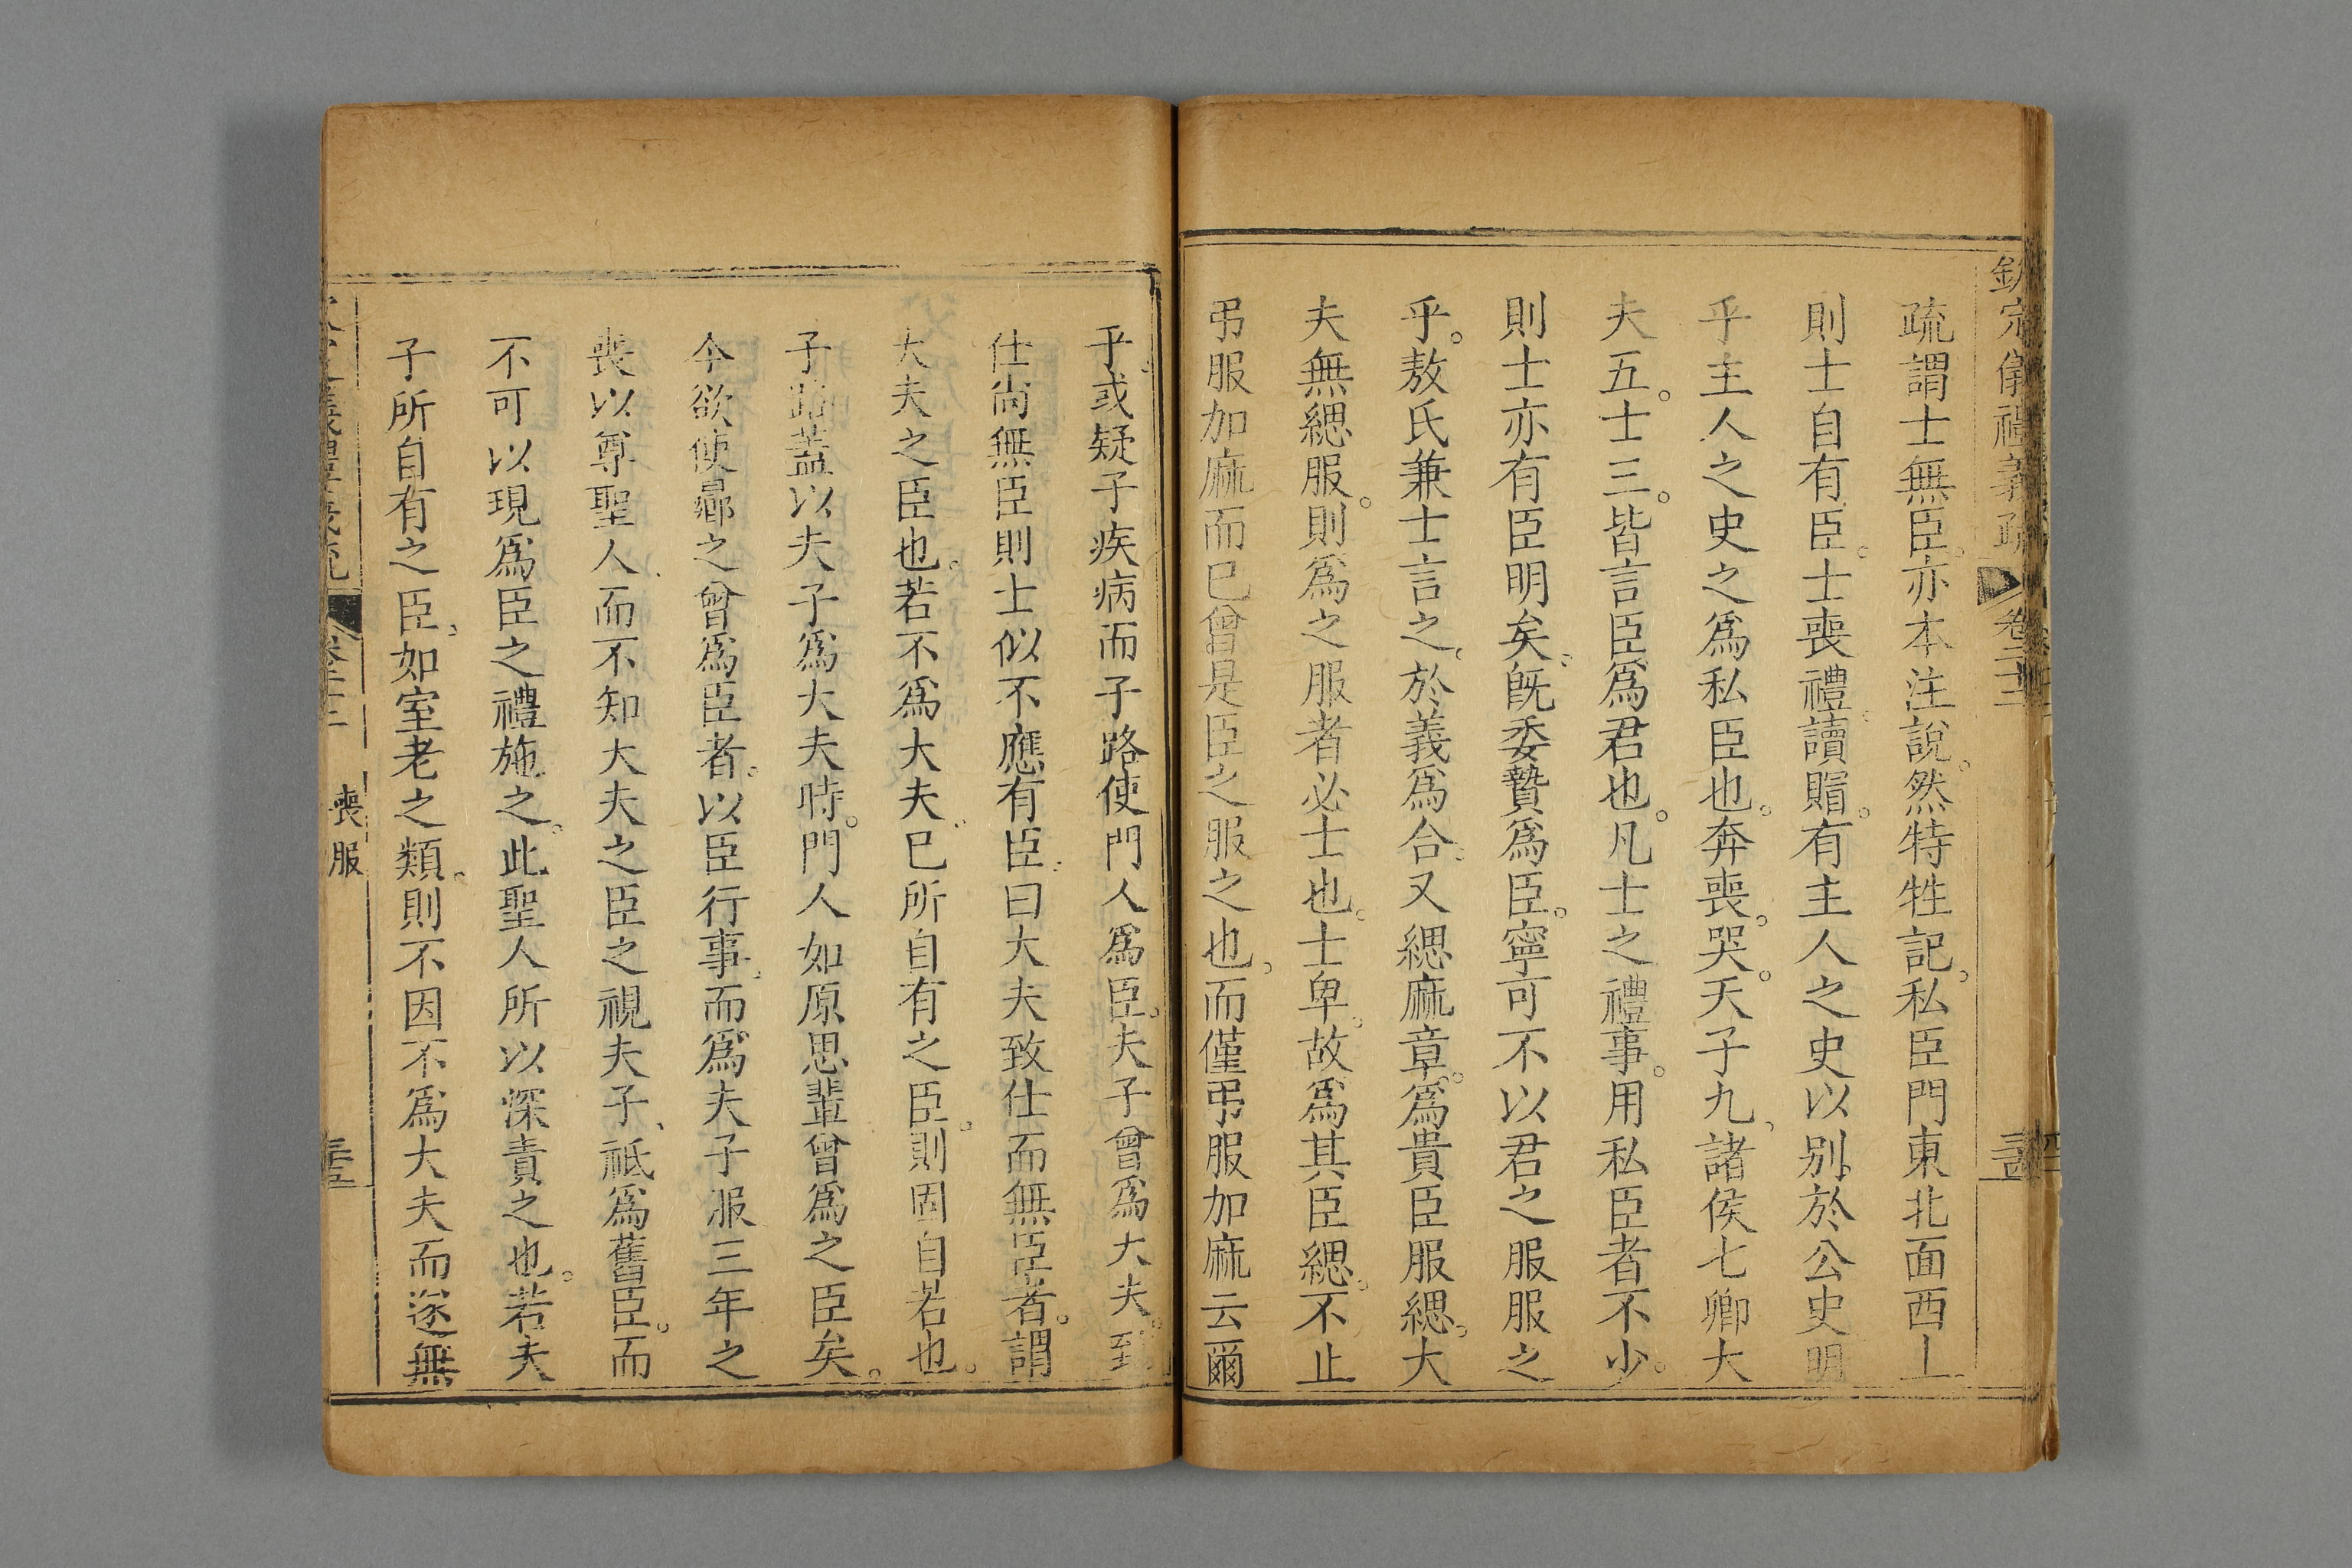 欽定儀禮義疏 卷二十三
疏謂士無臣。亦本注說。然特牲記。私臣門東北面西上。
則士自有臣。士喪禮讀賵。有主人之史以别於公史明
乎主人之史之爲私臣也。奔喪。哭。天子九、諸侯七卿大
夫五。士三。皆言臣爲君也。凡士之禮事。用私臣者不少。
則士亦有臣明矣。旣委贄爲臣。寧可不以君之服服之
乎。敖氏兼士言之、於義爲合。又緦麻章。爲貴臣服緦。大
夫無緦服。則爲之服者必士也。士卑。故爲其臣緦。不止
弔服加麻而已曾是臣之服之也。而僅弔服加麻云爾
乎。或疑子疾病而子路使門人爲臣。夫子曾爲大夫。致
仕尚無臣則士似不應有臣。曰大夫致仕而無臣者。謂
大夫之臣也。若不爲大夫。已所自有之臣。則固自若也。
子路蓋以夫子爲大夫時。門人如原思輩曾爲之臣矣。
今欲使曏之曾爲臣者。以臣行事。而爲夫子服三年之
喪以尊聖人。而不知大夫之臣之視夫子、祗爲舊臣。而
不可以現爲臣之禮施之。此聖人所以深責之也。若夫
子所自有之臣、如室老之類。則不因不爲大夫而遂無
喪服